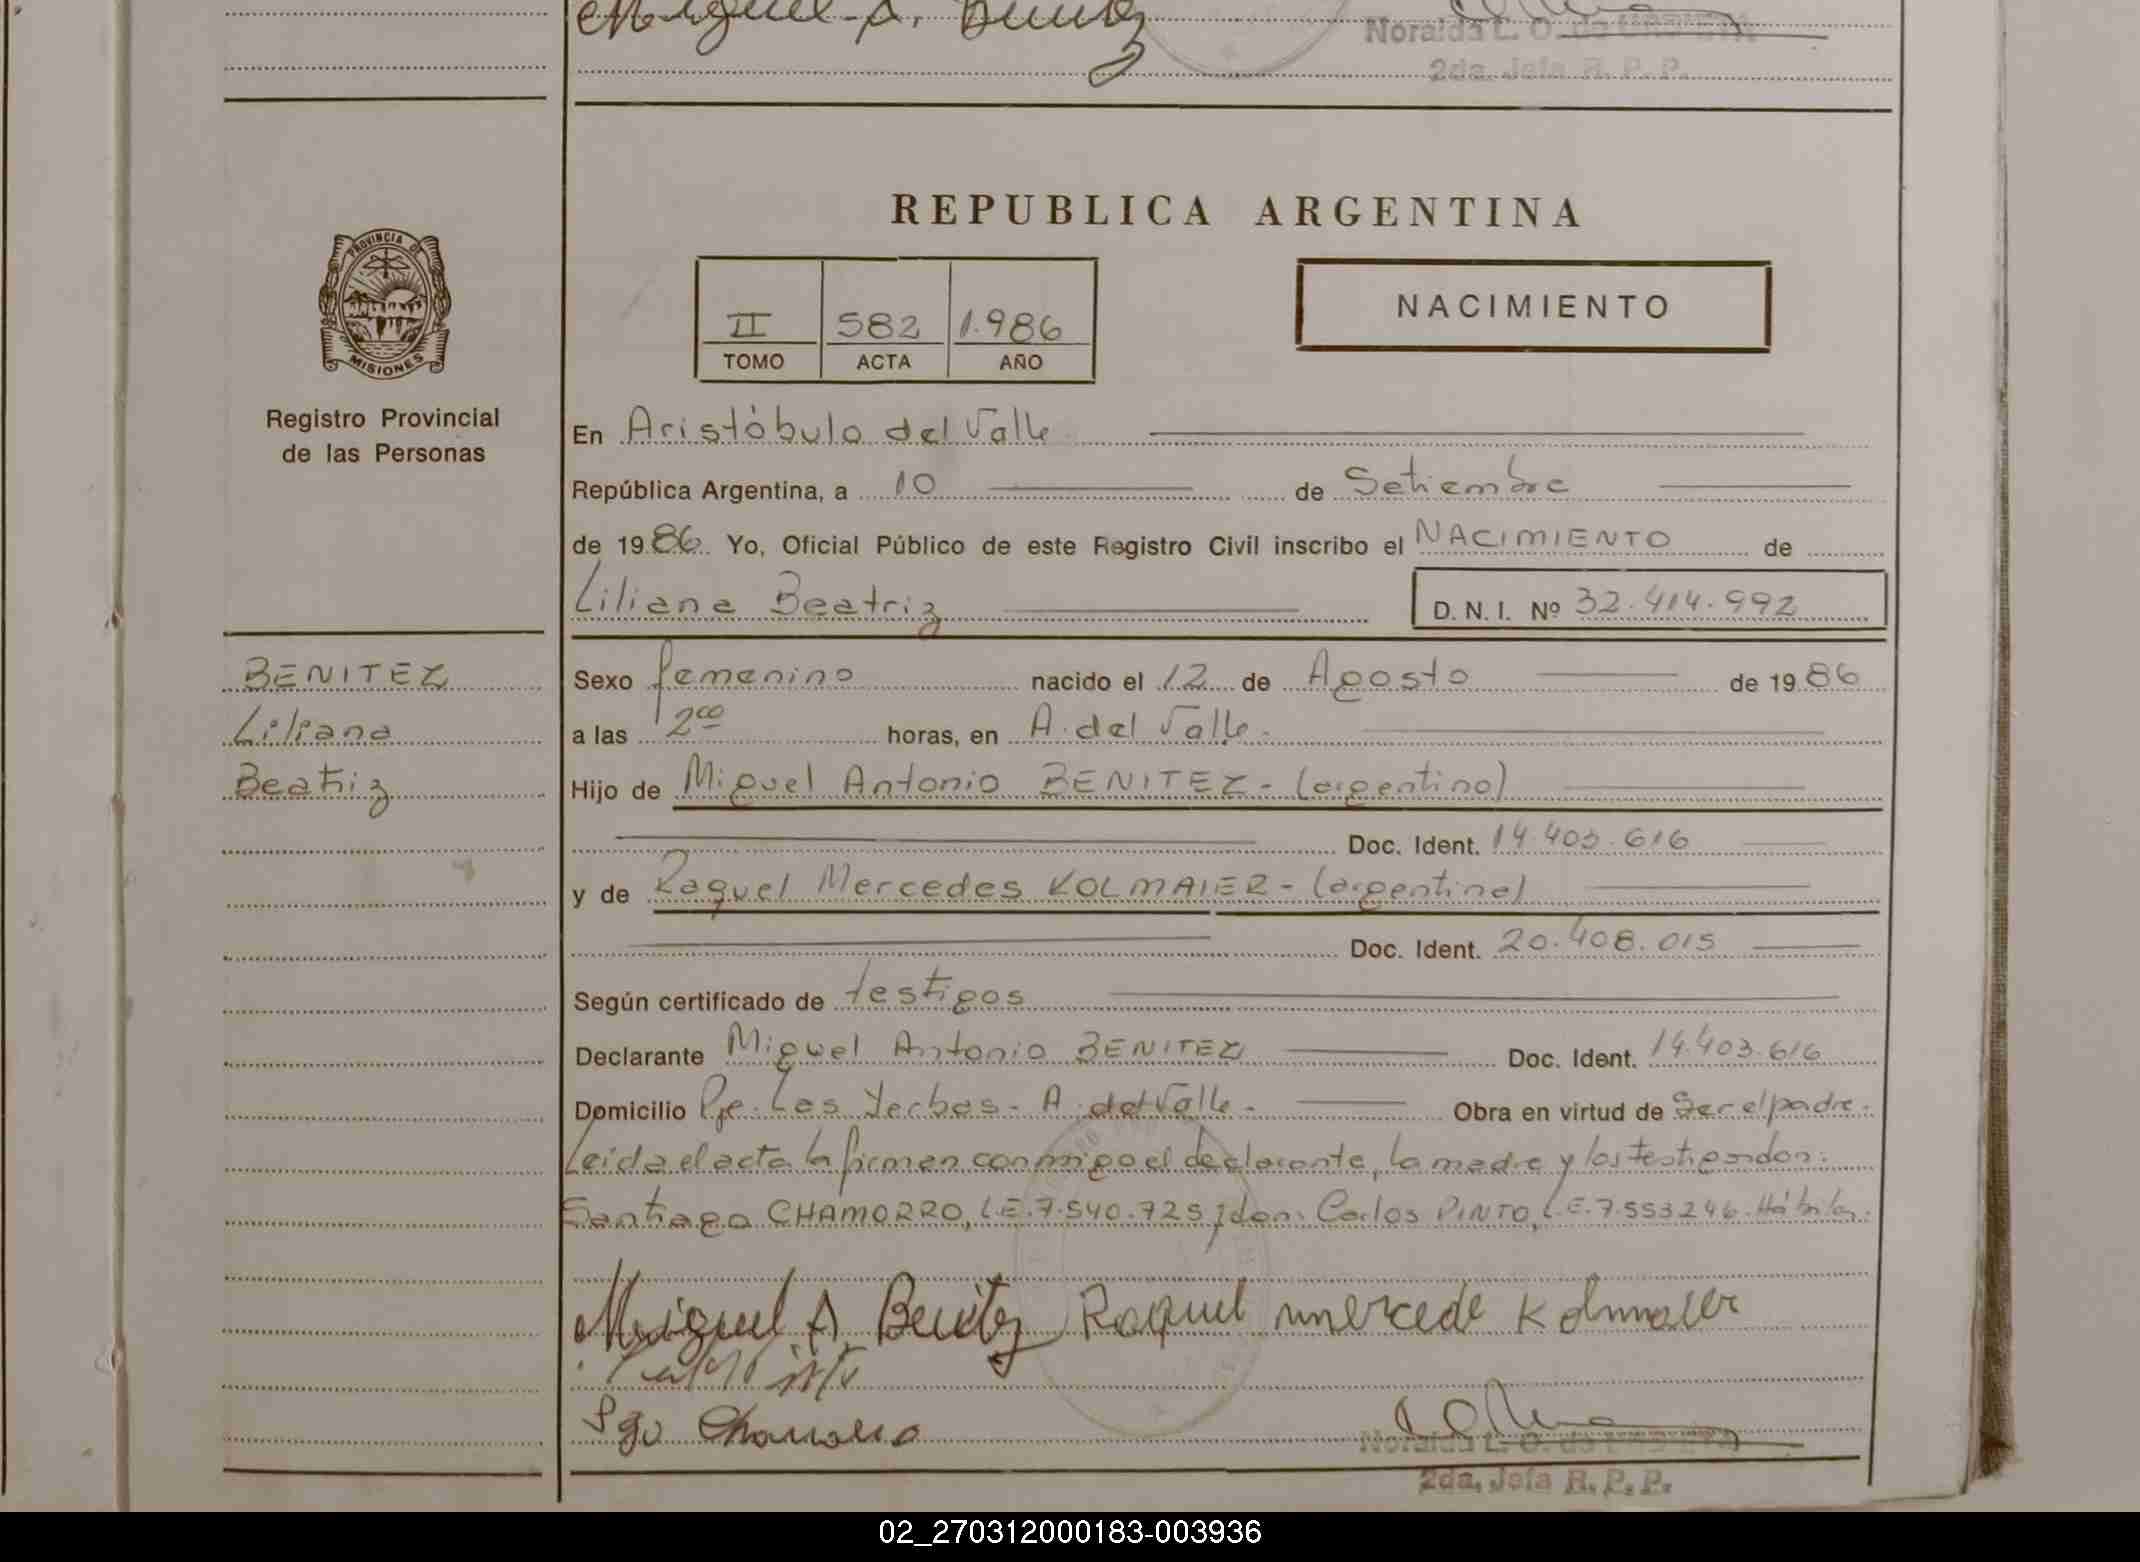 Miguel A. Benitez
Noralda L. O. de URBIETA
2da. Jefa R. P. P.
REPUBLICA ARGENTINA
PROVINCIA DE MISIONES
II 582 1.986
TOMO ACTA AÑO
NACIMIENTO
Registro Provincial
de las Personas
En Aristóbulo del Valle
República Argentina, a 10 de Setiembre
de 1986 Yo, Oficial Público de este Registro Civil inscribo el NACIMIENTO de
Liliana Beatriz D. N. I. Nº 32.414.992
BENITEZ
Liliana
Beatriz
Sexo femenino nacido el 12 de Agosto de 1986
a las 2 00 horas, en A. del Valle.
Hijo de Miguel Antonio BENITEZ - (argentino)
Doc. Ident. 14.403.616
y de Raquel Mercedes KOLMAIER - (argentina)
Doc. Ident. 20.408.015
Según certificado de testigos
Declarante Miguel Antonio BENITEZ Doc. Ident. 14.403.616
Domicilio Pje. Las Yerbas - A. del Valle - Obra en virtud de Ser el padre.
Leida el acta la firman conmigo el declarante, la madre y los testigos don:
Santiago CHAMORRO, L.E. 7.540.725 y don: Carlos PINTO, L.E. 7.553.246. Hábiles.
Miguel A. Benitez Raquel mercede Kolmaier
Sgo Chamorro
Noralda L. O. de URBIETA
2da. Jefa R. P. P.
02_270312000183-003936